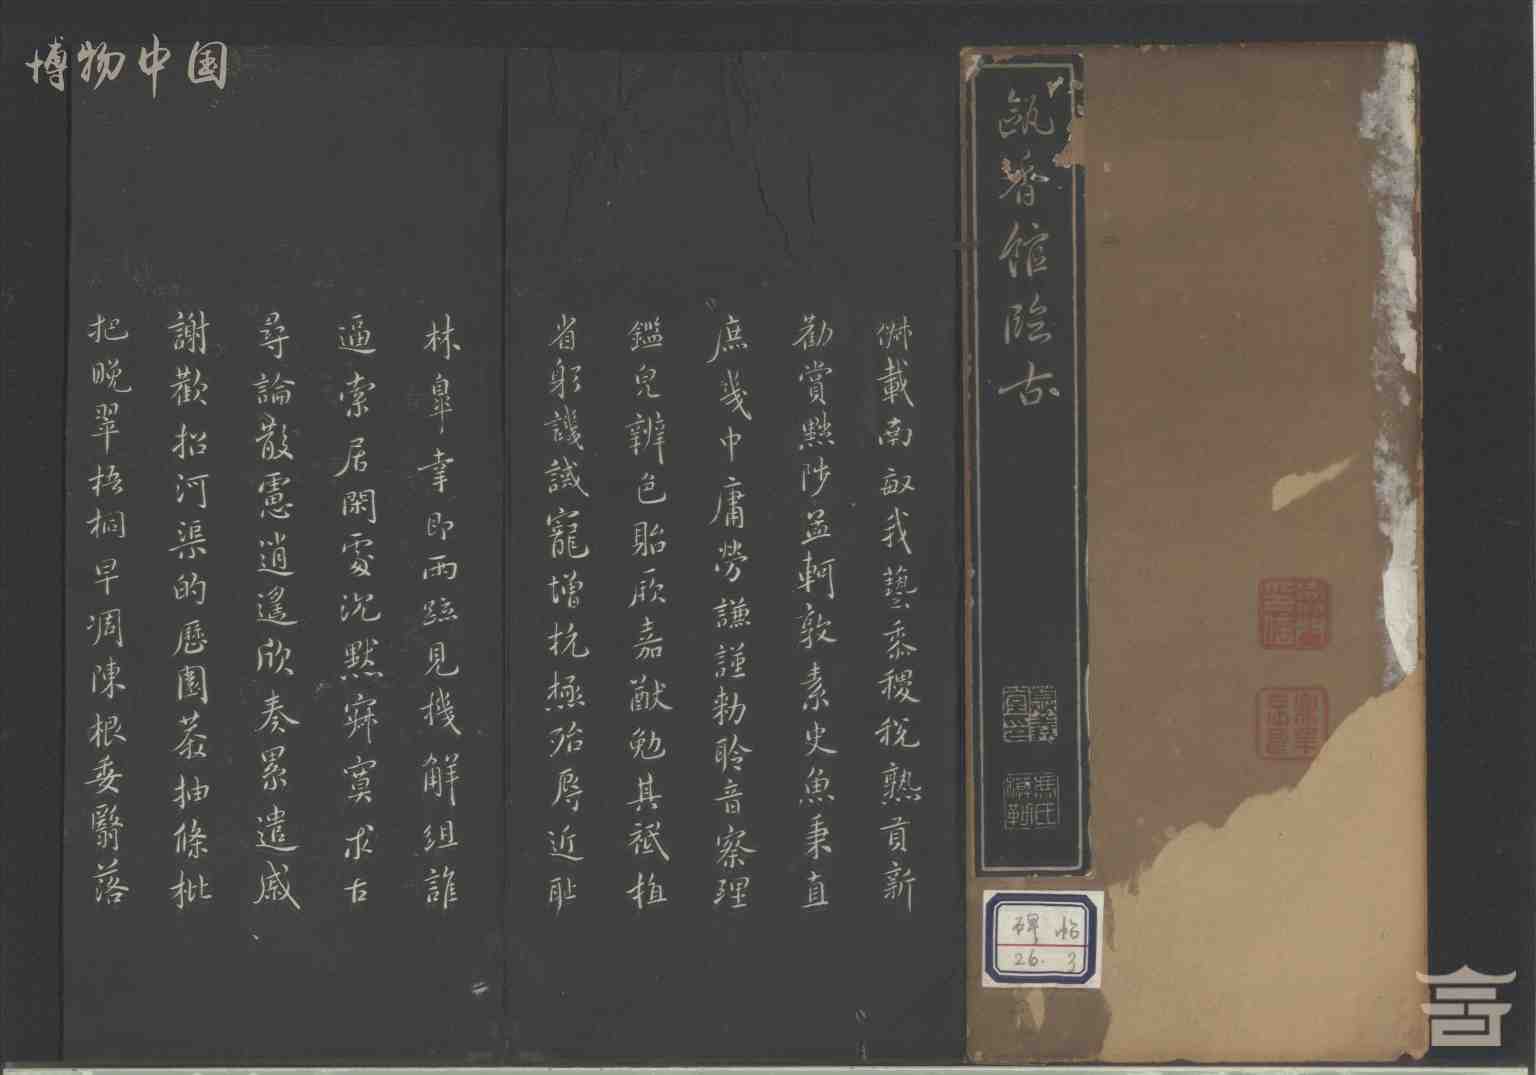 博物中国
甌香館臨古
碑帖
26. 3
俶載南畝我藝黍稷稅熟貢新
勸賞黜陟孟軻敦素史魚秉直
庶幾中庸勞謙謹勅聆音察理
鑑皃辨色貽厥嘉猷勉其祗植
省躬譏誡寵增抗極殆辱近耻
林皐幸即兩疏見機解組誰
逼索居閑處沉默寂寞求古
尋論散慮逍遙欣奏累遣慼
謝歡招渠河的歷園莽抽條枇
杷晚翠梧桐早凋陳根委翳落